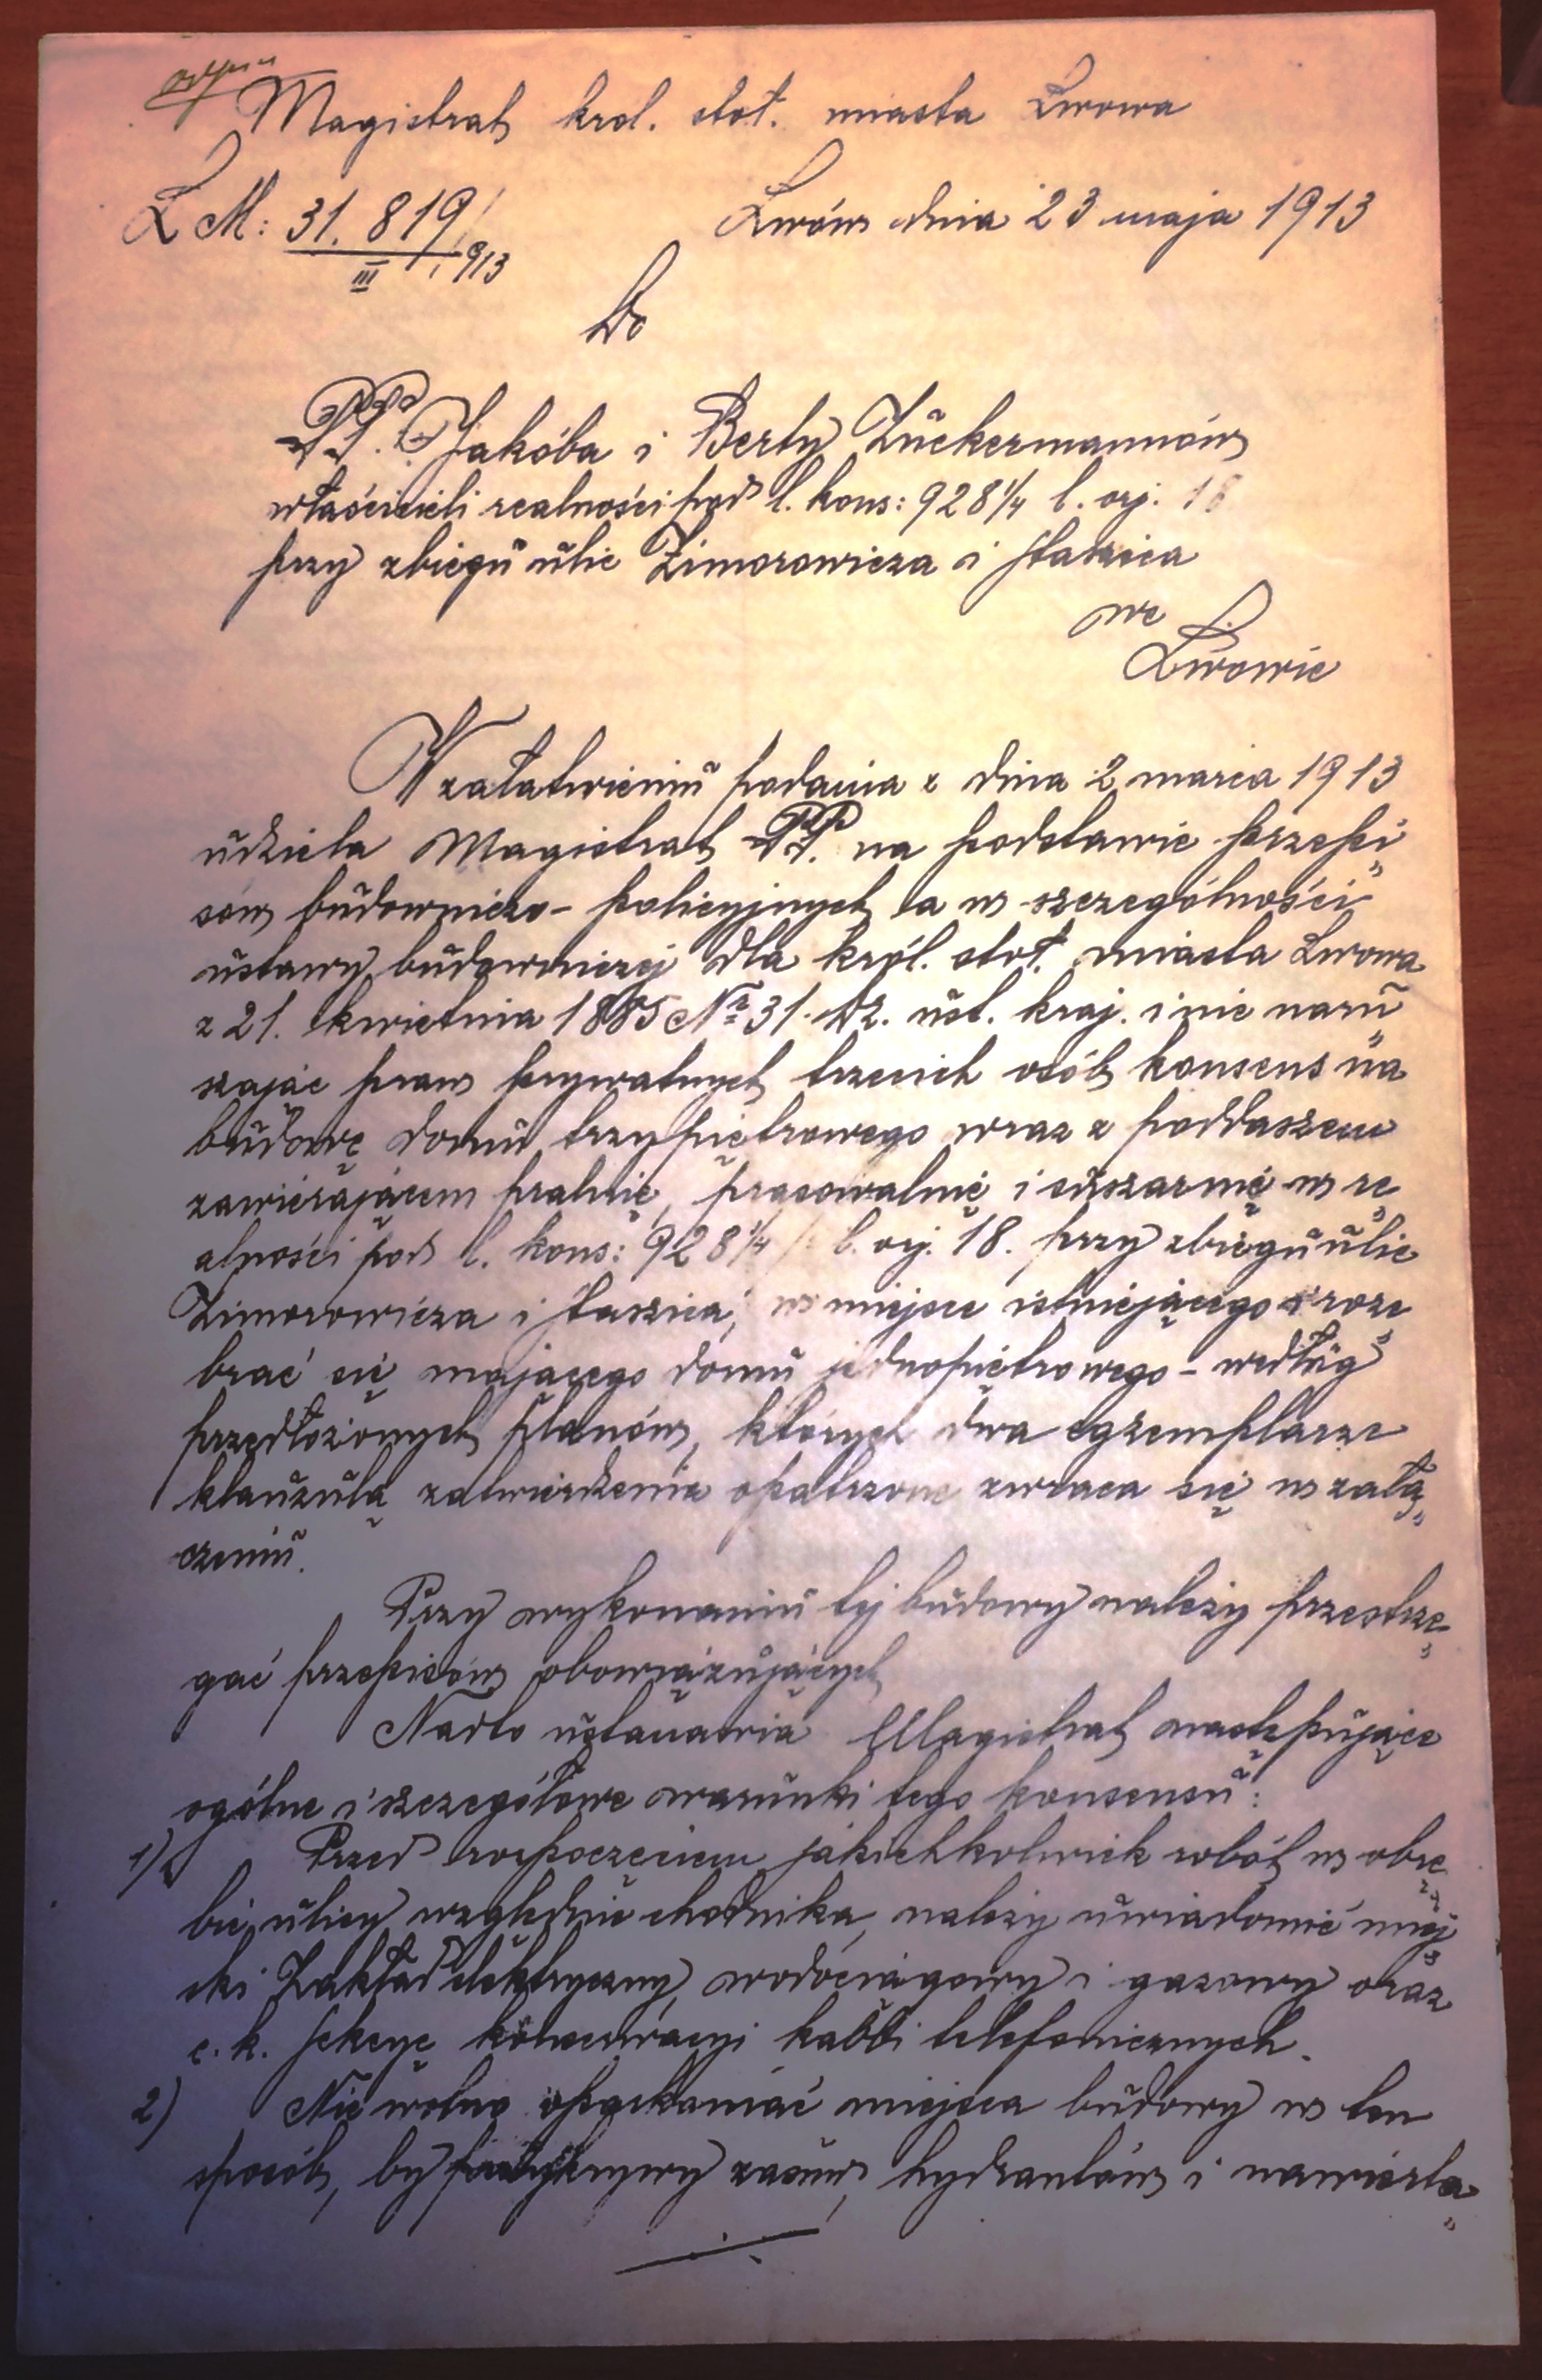 odpis
Magistrat krol. stoł. miasta Lwowa
L M: 31. 819/
III / 1913
Lwów dnia 23 maja 1913
Do
PP. Jakóba i Berty Zuckermannów
właścicieli realności pod l. kons: 928 1/4 l. orj. 18
przy zbiegu ulic Zimorowicza i Staszica
we
Lwowie
W załatwieniu podania z dnia 2 marca 1913
udziela Magistrat PP. na podstawie przepi„
sów budowniczo-policyjnych a w szczególności
ustawy budowniczej dla król. stoł. miasta Lwowa
z 21. kwietnia 1885 Nr 31. Dz. ust. kraj. i nie naru„
szając praw prywatnych trzecich osób konsens na
budowę domu trzypiętrowego wraz z poddaszem
zawierającem pralnię, prasowalnię i suszarnię w re„
alności pod l. kons: 928 1/4 l. orj. 18. przy zbiegu ulic
Zimorowicza i Staszica, w miejsce istniejącego a roze„
brać się mającego domu jednopiętrowego - według
przedłożonych planów, których dwa egzemplarze
klauzulą zatwierdzenia opatrzone zwraca się w załą„
czeniu.
Przy wykonaniu tej budowy należy przestrze„
gać przepisów obowiązujących
Nadto ustanawia Magistrat następujące
ogólne i szczegółowe warunki tego konsensu:
1) Przed rozpoczęciem jakichkolwiek robót w obrę„
bie ulicy względnie chodnika, należy uwiadomić miej„
ski Zakład elektryczny, wodociągowy i gazowy oraz
c. k. Sekcyę konserwacyi kabli telefonicznych.
2) Nie wolno oparkaniać miejsca budowy w ten
sposób, by pokrywy zasuw, hydrantów i nawierta„